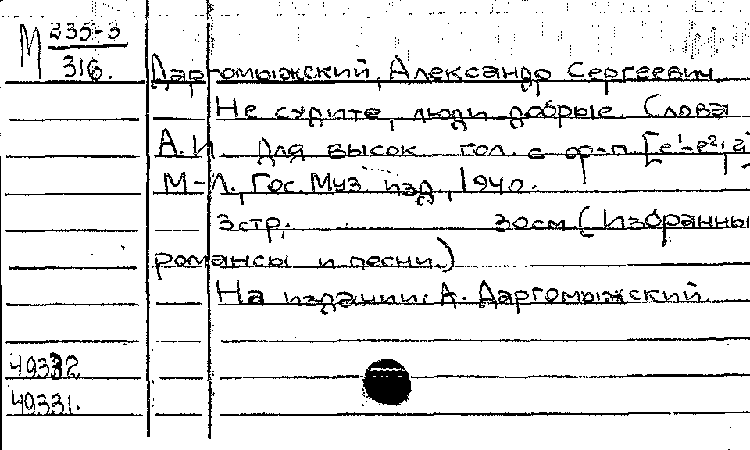 М 235-3
316.
Даргомыжский, Александр Сергеевич.
Не судите, люди добрые. Слова
А.И. Для высок. гол. с ф-п.
М-Л., Гос. Муз. изд., 1940.
3 стр. 30 см (Избранные
романсы и песни.)
На издании: А. Даргомыжский.
49332
49331.